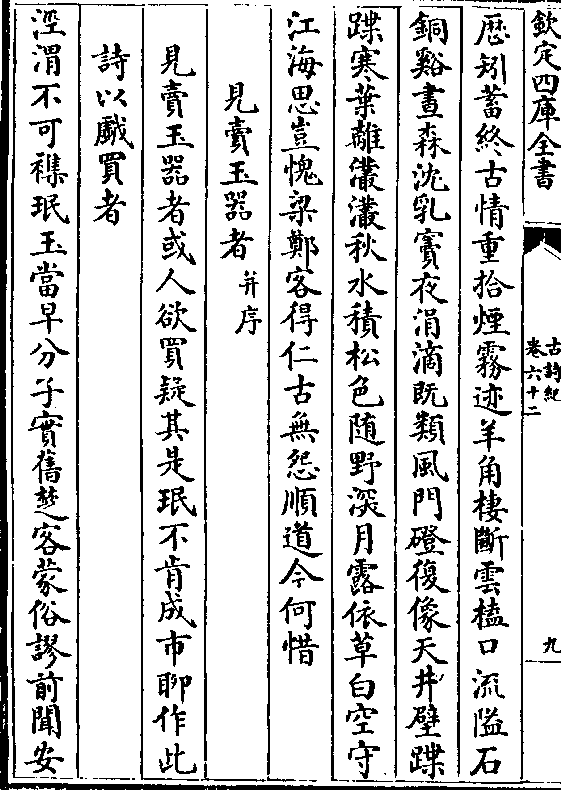 欽定四庫全書
古詩紀
卷六十二
九
歴躬蓄終古情重拾煙霧迹羊角棲斷雲榼口流隘石
銅谿晝森沈乳竇夜涓滴既類風門磴復像天井壁蹀
蹀寒葉離灇灇秋水積松色随野深月露依草白空守
江海思豈愧梁鄭客得仁古無怨順道今何惜
見賣玉器者并序
見賣玉器者或人欲買疑其是珉不肯成市聊作此
詩以戲買者
涇渭不可雜珉玉當早分子實舊楚客蒙俗謬前聞安